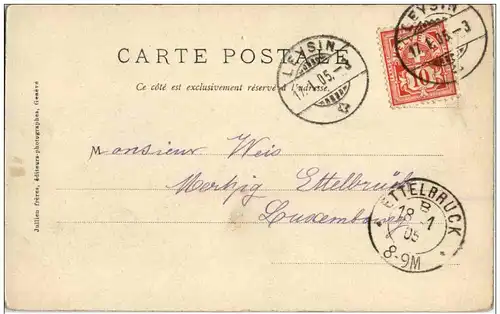 CARTE POSTALE
LEYSIN
17.1.05.-3
LEYSIN
17.1.05.-3
10
Ce côté est exclusivement réservé à l'adresse.
Jullien Frères, éditeurs-photographes, Genève
Monsieur Weis
Mertzig Ettelbrück
Luxembourg
ETTELBRUCK
B
18 1
05
8-9M